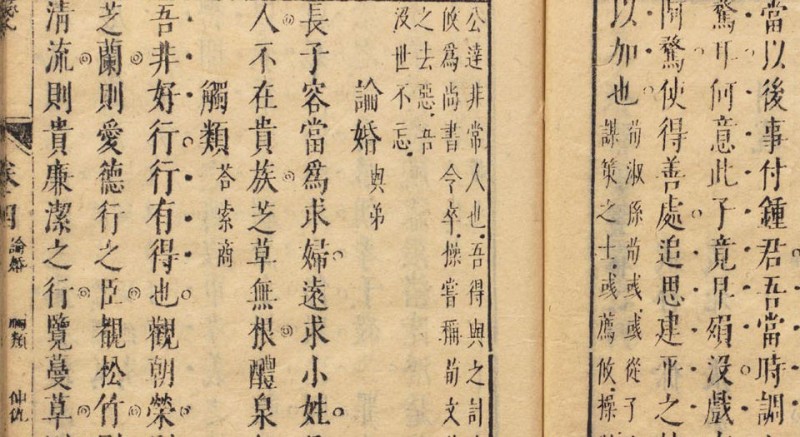 當以後事付鍾君吾當時調
驚耳何意此子竟早殞没戲
使得善處追思建平之
以加也
荀淑孫荀彧彧從子
謀策之士彧薦攸操
公達非常人也吾得與之計
攸爲尚書令卒操嘗稱荀文
之去惡吾
没世不忘
論婚 與弟
長子容當爲求婦遠求小姓
人不在貴族芝草無根醴泉
觸類 荅索商
吾非好行行有得也觀朝榮
芝蘭則愛德行之臣覩松竹
清流則貴廉潔之行覽蔓草
卷四 論婚 觸類